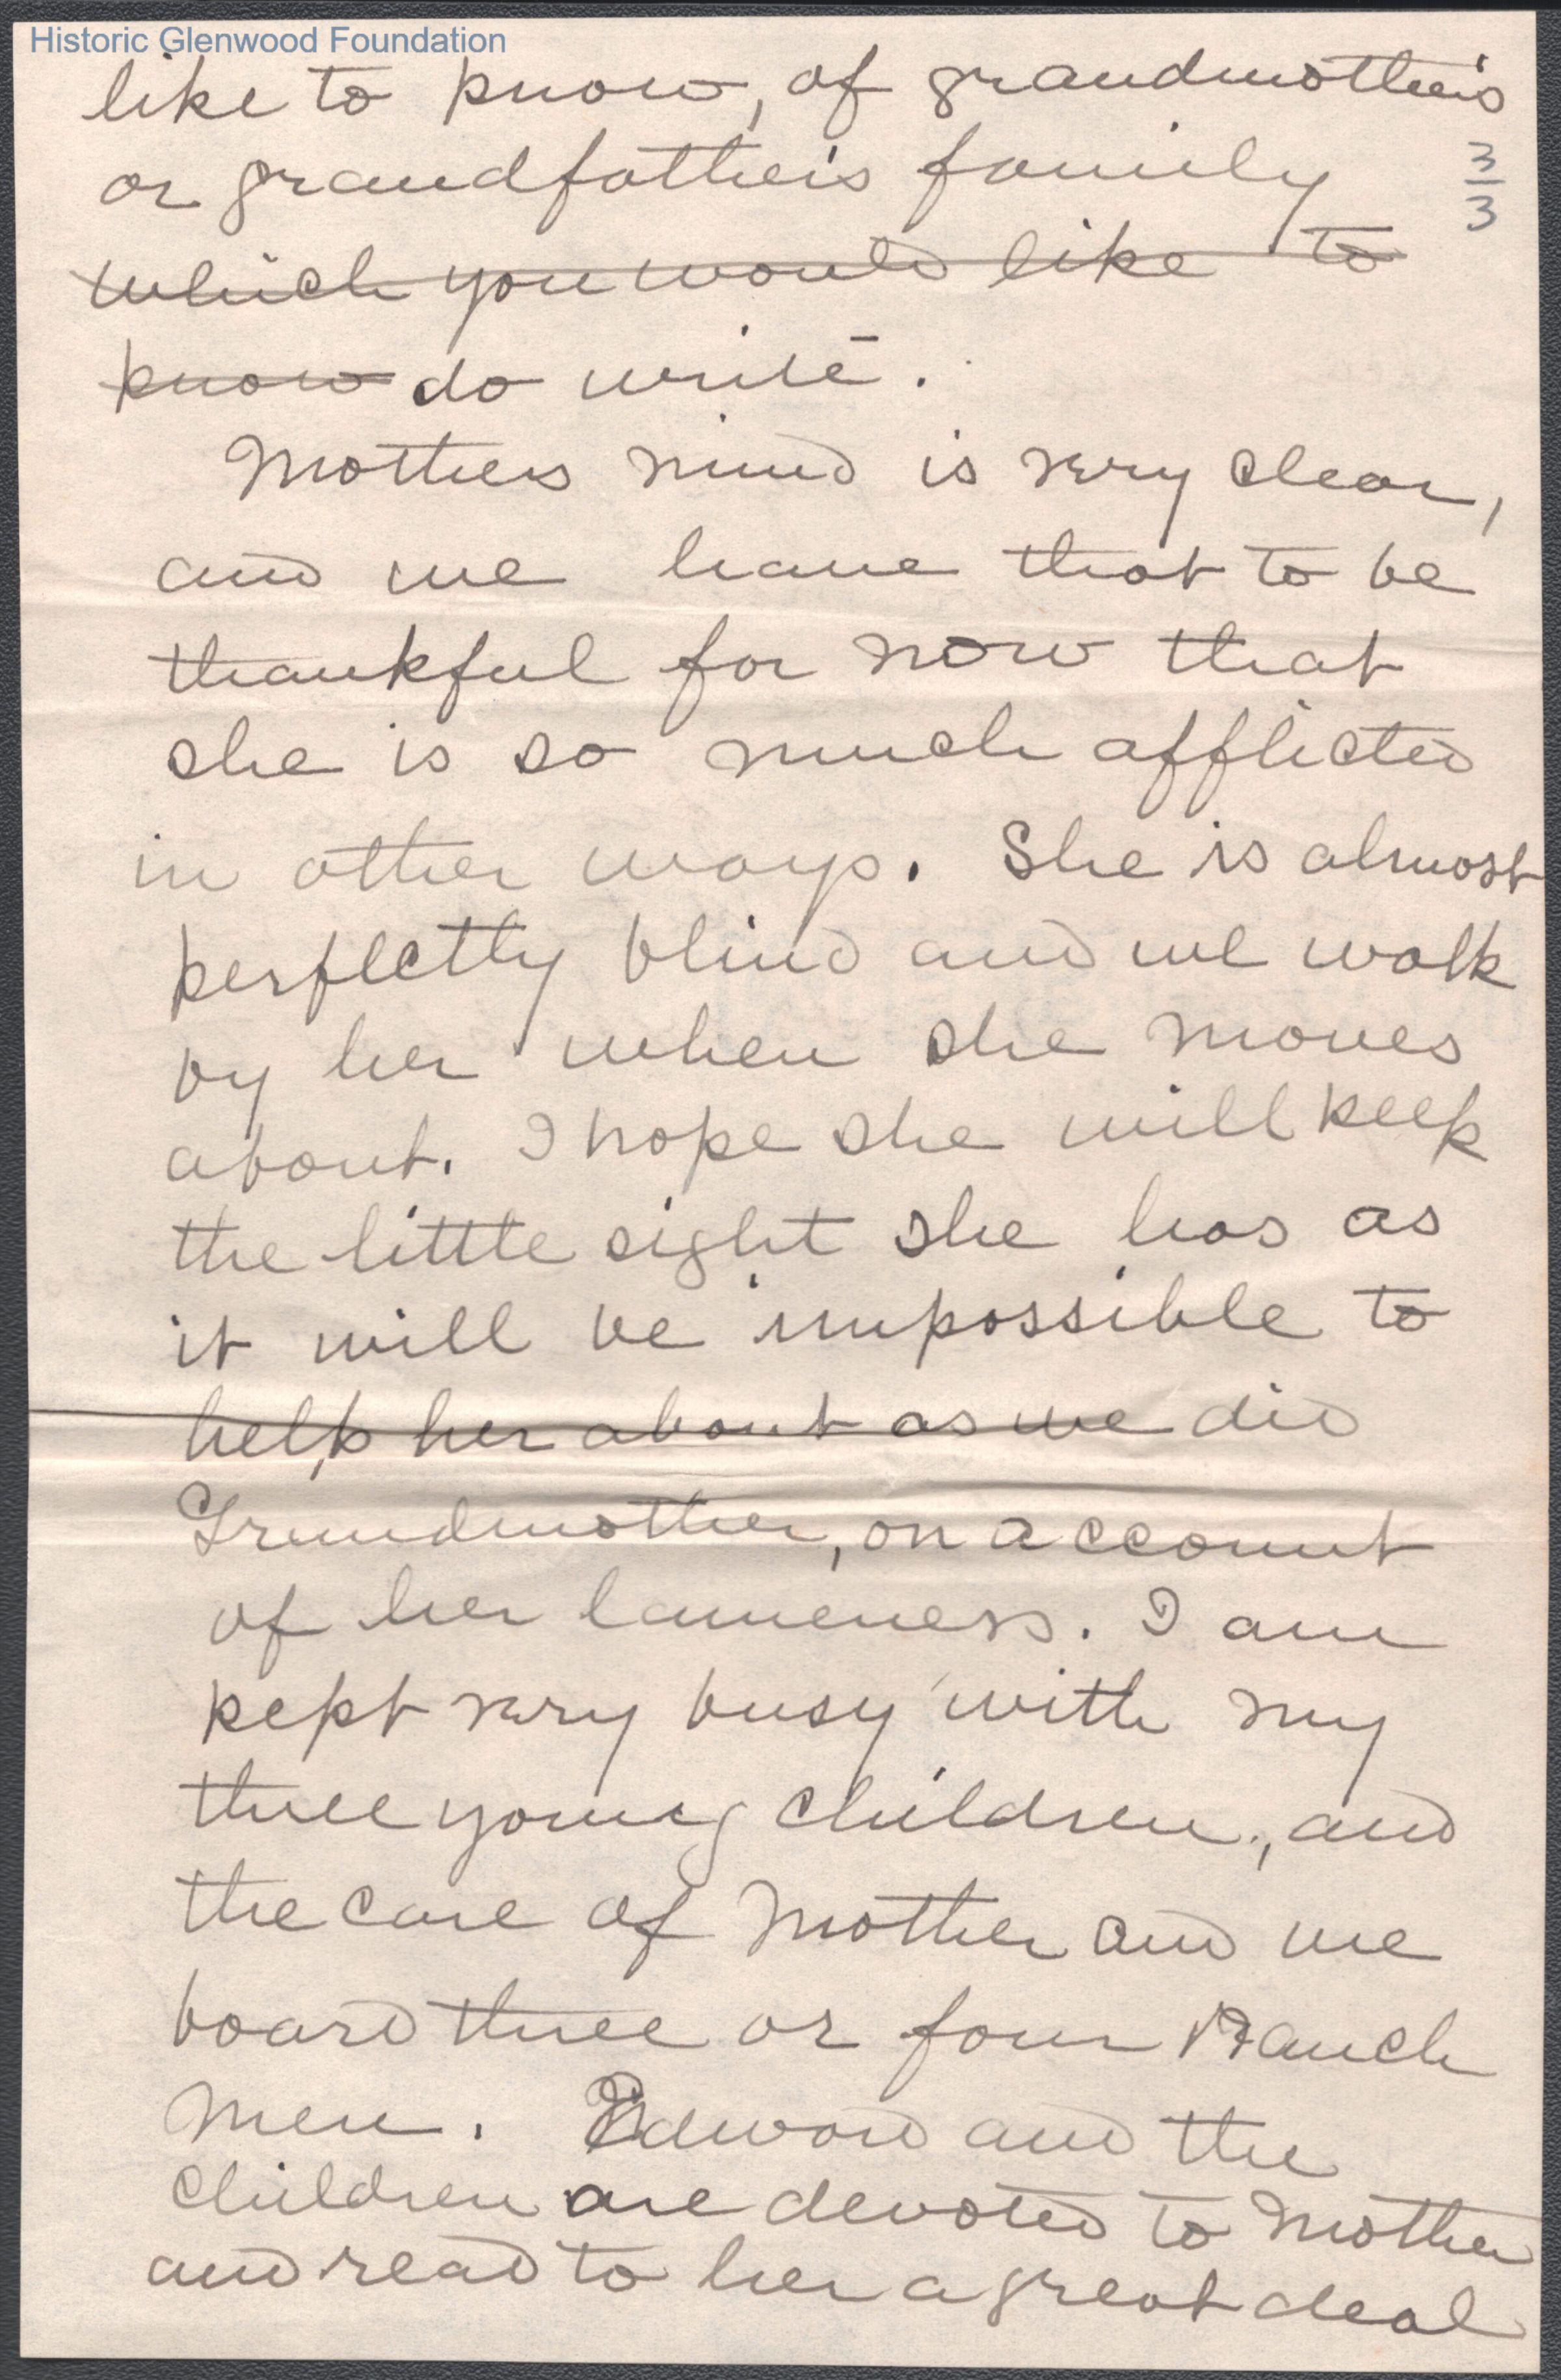 Historic Glenwood Foundation
like to know, of grandmother's
or grandfather's family
3/3
which you would like to
know do write.
Mothers mind is very clear,
and we have that to be
thankful for now that
she is so much afflicted
in other ways. She is almost
perfectly blind and we walk
by her when she moves
about. I hope she will keep
the little sight she has as
it will be impossible to
help her about as we did
Grandmother, on account
of her lameness. I am
kept very busy with my
three young children, and
the care of Mother and we
board three or four Ranch
Men. Edward and the
children are devoted to Mother
and read to her a great deal